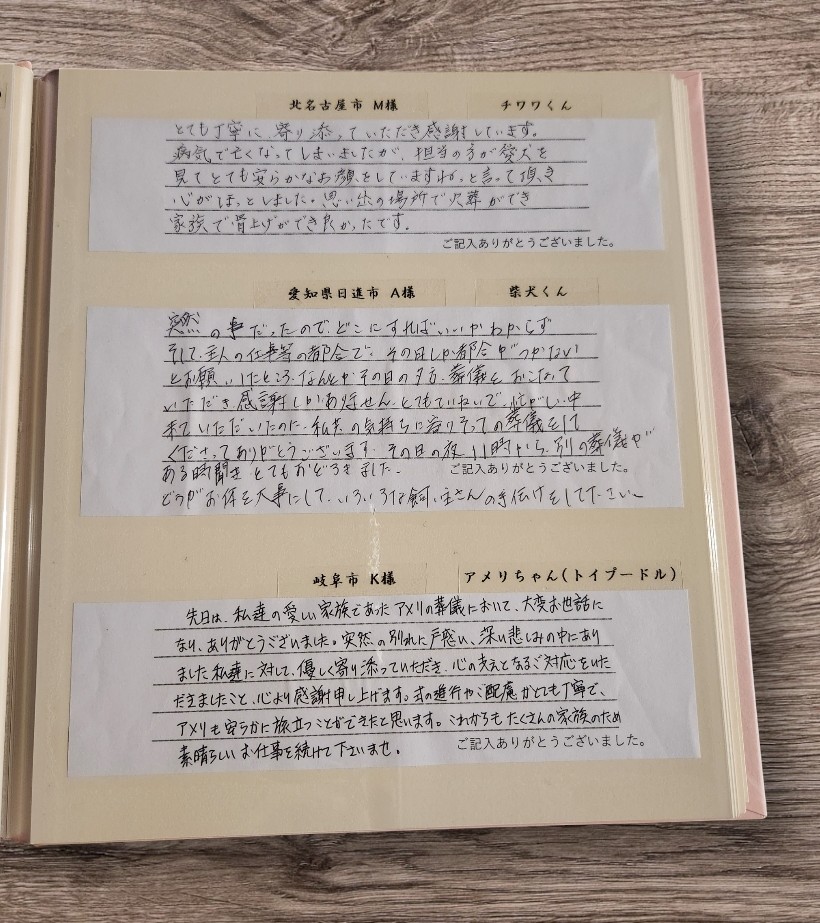 北名古屋市 M様　チワワくん
とても丁寧に、寄り添っていただき感謝しています。
病気で亡くなってしまいましたが、担当の方が愛犬を
見てとても安らかなお顔をしていますねっと言って頂き
心がほっとしました。思い出の場所で火葬ができ
家族で骨上げができ良かったです。
ご記入ありがとうございました。
愛知県日進市 A様　柴犬くん
突然の事だったので、どこにすればいいかわからず
そして、主人の仕事等の都合で、その日しか都合がつかない
とお願いしたところ、なんとかその日の夕方、葬儀をおこなって
いただき、感謝しかありません。とてもていねいで、忙がしい中
来ていただいたのに、私共の気持ちに寄りそっての葬儀をして
くださってありがとうございます。その日の夜、11時から、別の葬儀が
ある時聞き とてもおどろきました。
ご記入ありがとうございました。
どうかお体を大事にして、いろいろな飼い主さんの手伝けをして下さい。
岐阜市 K様　アメリちゃん(トイプードル)
先日は、私達の愛しい家族であったアメリの葬儀において、大変お世話に
なり、ありがとうございました。突然の別れに戸惑い、深い悲しみの中にあり
ました私達に対して、優しく寄り添っていただき、心の支えとなるご対応をいた
だきましたこと、心より感謝申し上げます。式の進行やご配慮がとても丁寧で、
アメリも安らかに旅立つことができたと思います。これからも たくさんの家族のため
素晴らしい お仕事を続けて下さいませ。
ご記入ありがとうございました。